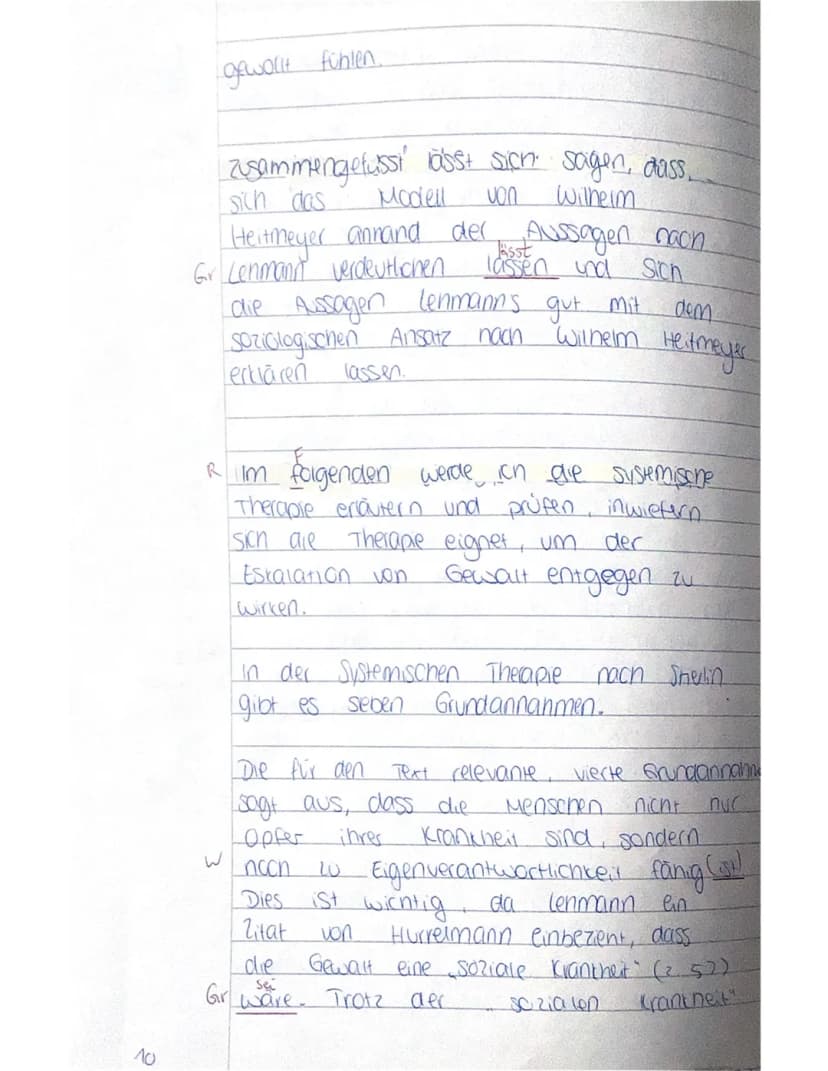 gewollt fühlen.
Zusammengefasst lässt sich sagen, dass
sich das Modell von Wilhelm
Heitmeyer anhand der Aussagen nach
lässt
Gr Lehmann verdeutlichen lassen und sich
die Aussagen Lehmanns gut mit dem
soziologischen Ansatz nach Wilhelm Heitmeyer
erklären lassen.
F
R Im folgenden werde ich die systemische
Therapie erläutern und prüfen, inwiefern
sich die Therapie eignet, um der
Eskalation von Gewalt entgegen zu
wirken.
In der Systemischen Therapie nach Stierlin
gibt es sieben Grundannahmen.
Die für den Text relevante, vierte Grundannahme
sagt aus, dass die Menschen nicht nur
Opfer ihres Krankheit sind, sondern
W noch zu Eigenverantwortlichkeit fähig (ist)
Dies ist wichtig, da Lehmann ein
Zitat von Hurrelmann einbezieht, dass
die Gewalt eine „soziale Krankheit" (Z. 57)
sei
Gr wäre. Trotz der „sozialen Krankheit"
10